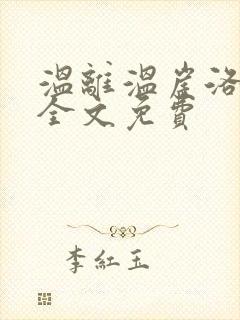 溫離溫崖洛
全文免費
李紅玉